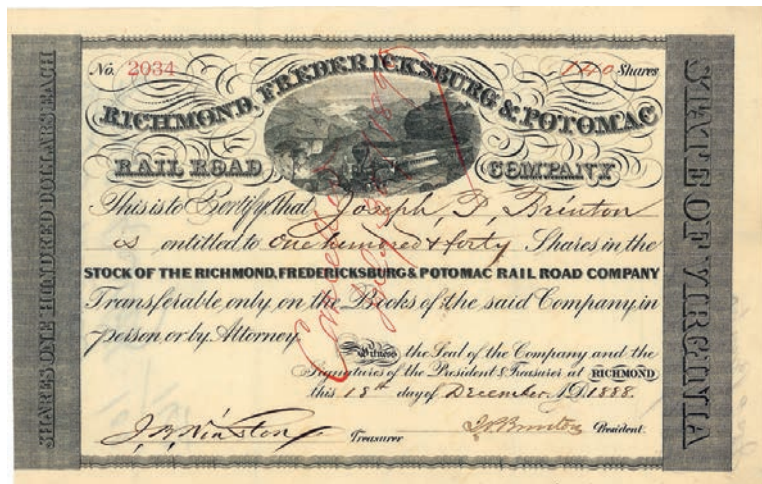 No. 2034
140 Shares
RICHMOND, FREDERICKSBURG & POTOMAC
RAIL ROAD COMPANY
This is to Certify that Joseph P. Brinton
is entitled to one hundred & forty Shares in the
STOCK OF THE RICHMOND, FREDERICKSBURG & POTOMAC RAIL ROAD COMPANY
Transferable only on the Books of the said Company in
person or by Attorney.
Witness the Seal of the Company and the
Signatures of the President & Treasurer at RICHMOND
this 18th day of December A.D. 1888.
J. B. Winston Treasurer
President.
SHARES ONE HUNDRED DOLLARS EACH
STATE OF VIRGINIA
Cancelled